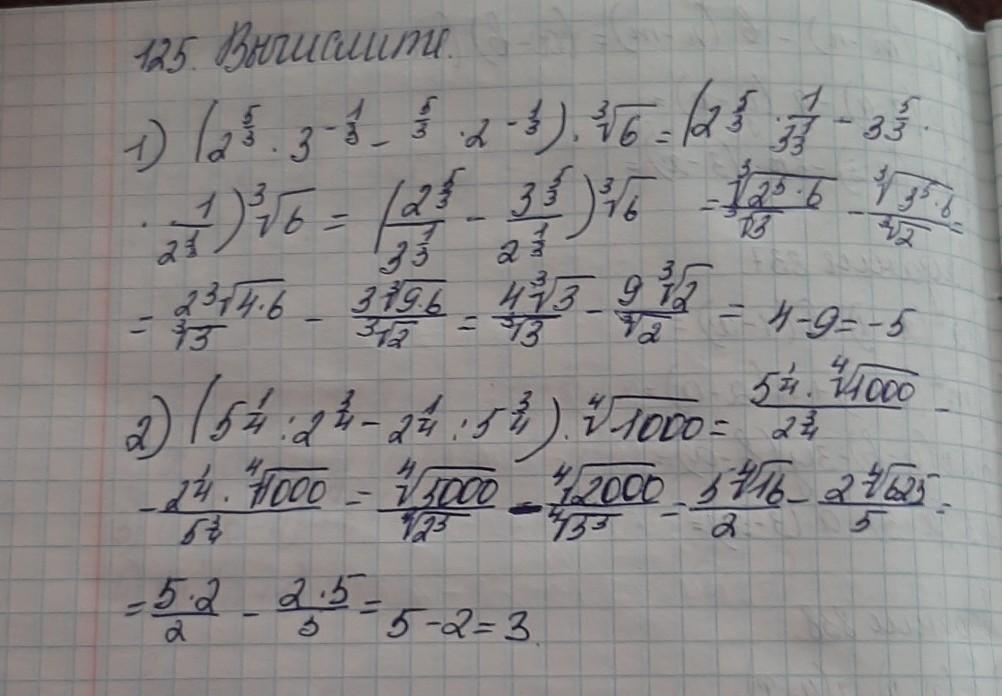 125. Вычислите.
1) (2^{5/3} · 3^{-1/3} - ^{5/3} · 2^{-1/3}) · ∛6 = (2^{5/3} · 1/3^{1/3} - 3^{5/3} ·
· 1/2^{1/3}) ∛6 = (2^{5/3}/3^{1/3} - 3^{5/3}/2^{1/3}) ∛6 = ∛(2⁵·6)/∛3 - ∛(3⁵·6)/∛2 =
= 2∛(4·6)/∛3 - 3∛(9·6)/∛2 = 4∛3/∛3 - 9∛2/∛2 = 4-9 = -5
2) (5^{1/4} : 2^{3/4} - 2^{1/4} : 5^{3/4}) · ∜1000 = 5^{1/4} · ∜1000/2^{3/4} -
- 2^{1/4} · ∜1000/5^{3/4} = ∜5000/∜2³ - ∜2000/∜5³ = 5∜16/2 - 2∜625/5 =
= 5·2/2 - 2·5/5 = 5-2 = 3.